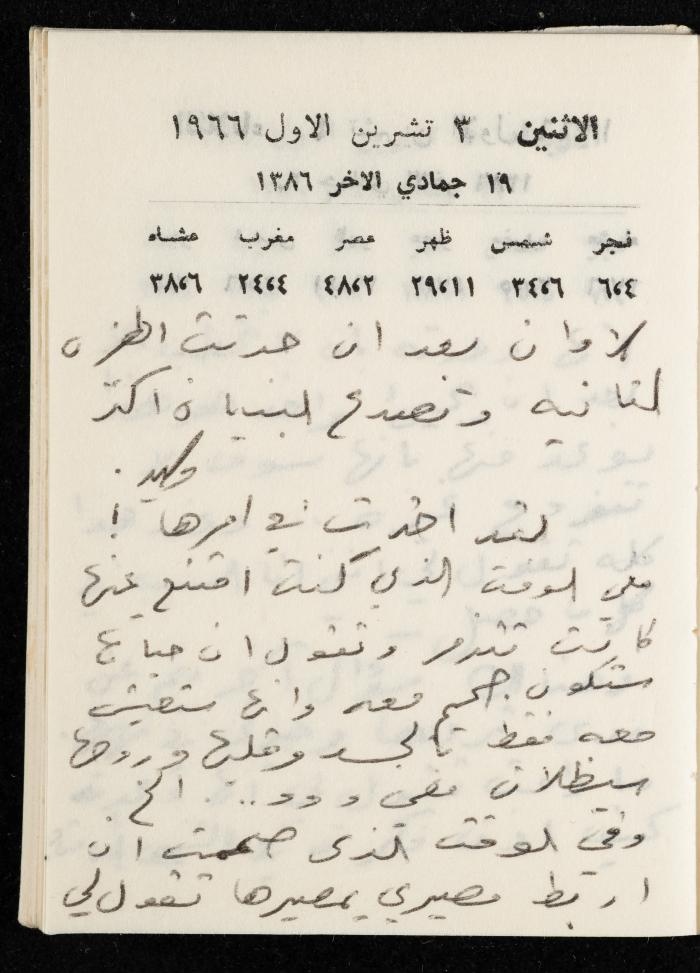 الاثنين ٣ تشرين الاول ١٩٦٦
١٩ جمادي الاخر ١٣٨٦
فجر شمس ظهر عصر مغرب عشاء
٦،٤ ٣٤،٦ ٢٩،١١ ٤٨،٢ ٢٤،٤ ٣٨،٦
الاوان بعد ان حدثت الهزه
الثانيه وتصدع البنيان اكثر
لقد احترت في امرها !
ففي الوقت الذي كنت اقتنع عنها
كانت تتذمر وتقول ان حياتها
ستكون جحيم معه وانها ستعيش
معه فقط بالجسد وقلبها وروحها
سيظلان معي و و و .. الخ .
وفي الوقت الذي صممت ان
اربط مصيري بمصيرها تقول لي